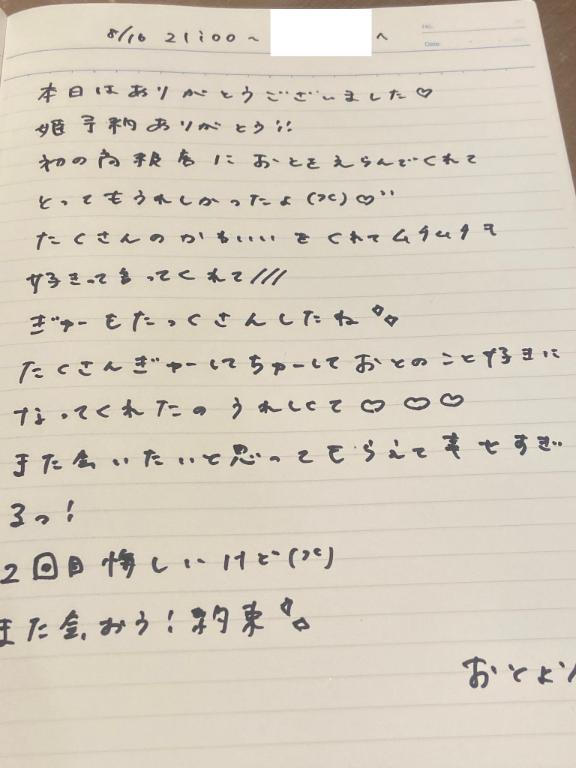 8/16 21:00～ へ
No.
Date
本日はありがとうございました♡
姫予約ありがとう!!
初の高級店におとをえらんでくれて
とってもうれしかったよ(><)♡""
たくさんのかわいいをくれてムチムチを
好きって言ってくれて///
ぎゅーもたっくさんしたね
たくさんぎゅーしてちゅーしておとのこと好きに
なってくれたのうれしくて♡♡♡
また会いたいと思ってもらえて幸せすぎ
るっ!
2回目悔しいけど(><)
また会おう!約束
おとより